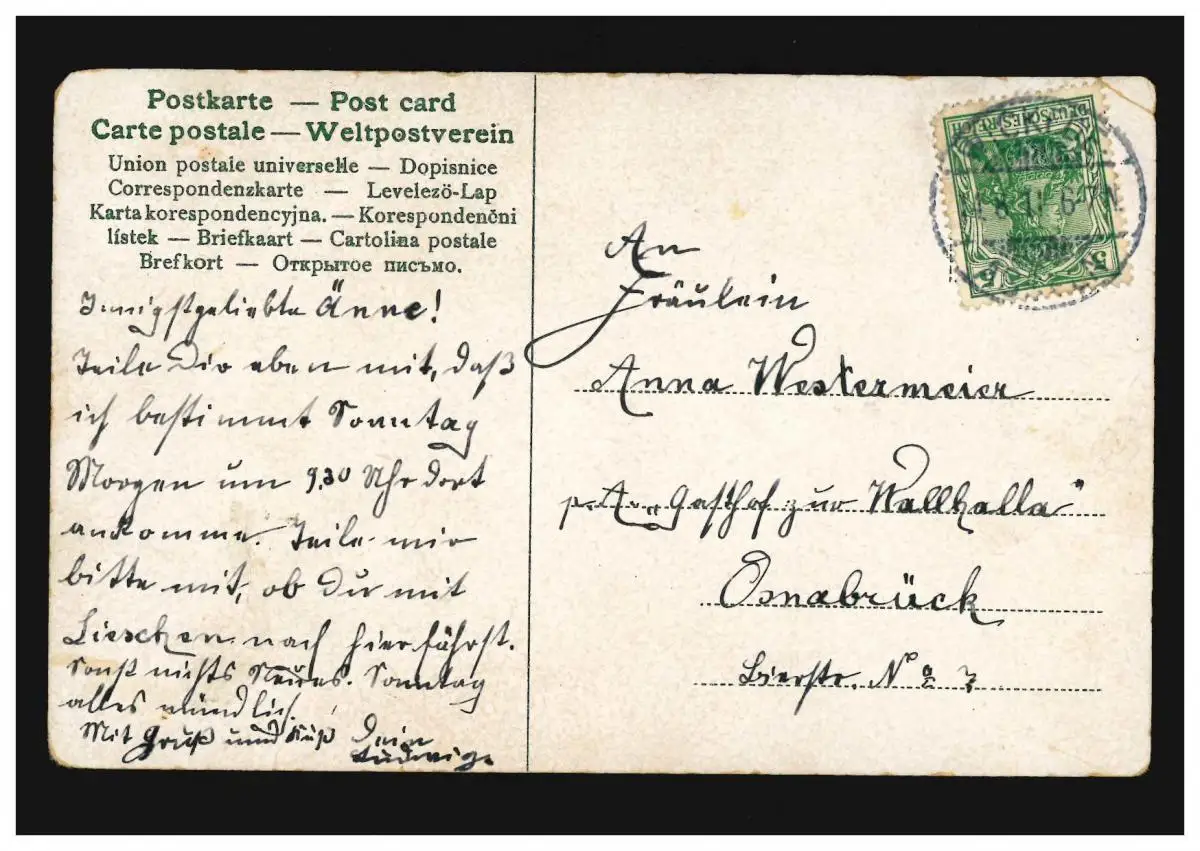 Postkarte — Post card
Carte postale — Weltpostverein
Union postale universelle — Dopisnice
Correspondenzkarte — Levelező-Lap
Karta korespondencyjna. — Korespondenčni
lístek — Briefkaart — Cartolina postale
Brefkort — Открытое письмо.
Innigstgeliebte Änne!
Teile Dir eben mit, daß
ich bestimmt Sonntag
Morgen um 9.30 Uhr dort
ankomme. Teile mir
bitte mit, ob Du mit
Lieschen nach hier fährst.
Sonst nichts Neues. Sonntag
alles mündlich.
Mit Gruß und Kuß Dein
Ludwig.
DEUTSCHES REICH
5 5
8.11 6-7N
An
Fräulein
Anna Westermeier
p. A. „Gasthof zur Wallhalla"
Osnabrück
Bierstr. No